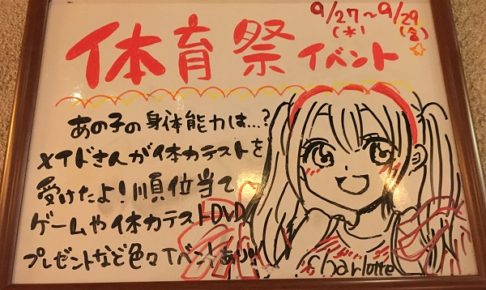 体育祭イベント
9/27〜9/29
(水) (金)
あの子の身体能力は…?
メイドさんが体力テストを
受けたよ!順位当て
ゲームや体力テストDVD
プレゼントなど色々イベントあり!!
Charlotte